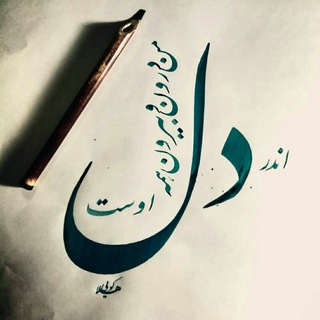 اندر دل
من درون و بیرون همه
اوست